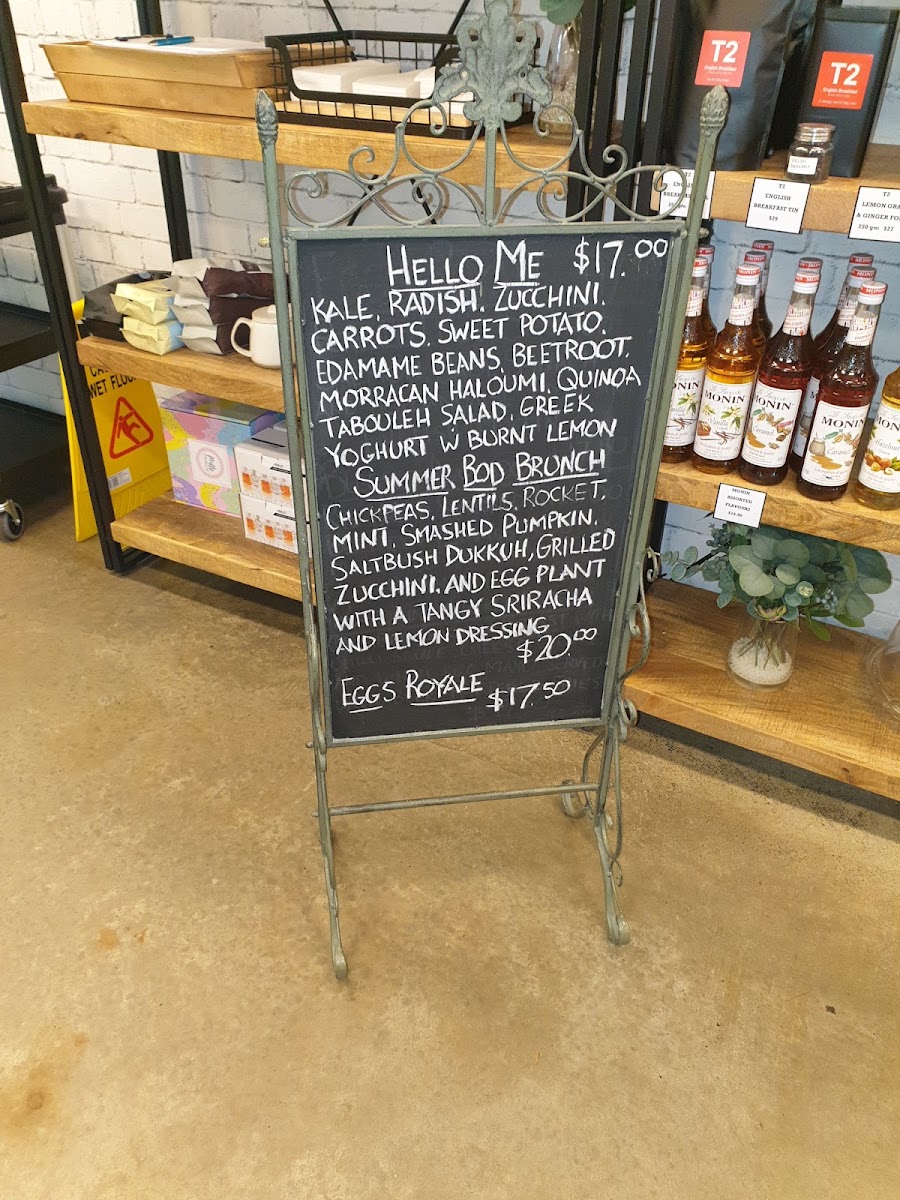 T2
English Breakfast
T2
English Breakfast
T2
ENGLISH
BREAKFAST TIN
$29
T2
LEMON GRA
& GINGER FO
250 gm $27
HELLO ME $17.00
KALE, RADISH, ZUCCHINI,
CARROTS, SWEET POTATO,
EDAMAME BEANS, BEETROOT,
MORRACAN HALOUMI, QUINOA
TABOULEH SALAD, GREEK
YOGHURT W BURNT LEMON
SUMMER BOD BRUNCH
CHICKPEAS, LENTILS, ROCKET,
MINT, SMASHED PUMPKIN,
SALTBUSH DUKKUH, GRILLED
ZUCCHINI, AND EGG PLANT
WITH A TANGY SRIRACHA
AND LEMON DRESSING
$20.00
EGGS ROYALE $17.50
WET FLOO
MONIN
MONIN
Vanilla
MONIN
Caramel
MONIN
Caramel
MONIN
Hazelnut
MONIN
ASSORTED
FLAVOURS